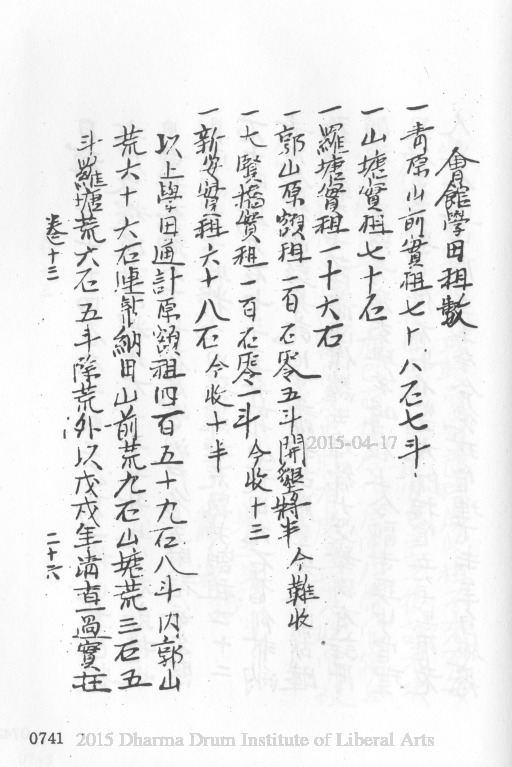 會館學田租數
一青原山前實租七十八石七斗
一山塘實租七十石
一羅塘實租一十六石
一郭山原額租一百石零五斗開墾將半 今難收
一七賢橋實租一百石零一斗 今收十三
一新安實租六十八石 今收十半
以上學田通計原額租四百五十九石八斗內郭山
荒六十六石連帶納田山前荒九石山塘荒三石五
斗羅塘荒六石五斗除荒外以戊戌年清查過實在
卷十三 二十六
2015-04-17
0741 2015 Dharma Drum Institute of Liberal Arts